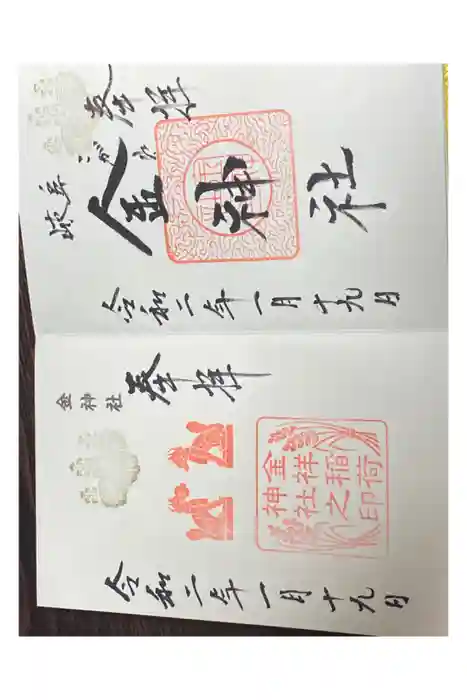 奉拝
岐阜
こがね
金神社
令和二年一月十九日
奉拝
金神社
金祥稲荷
神社之印
令和二年一月十九日